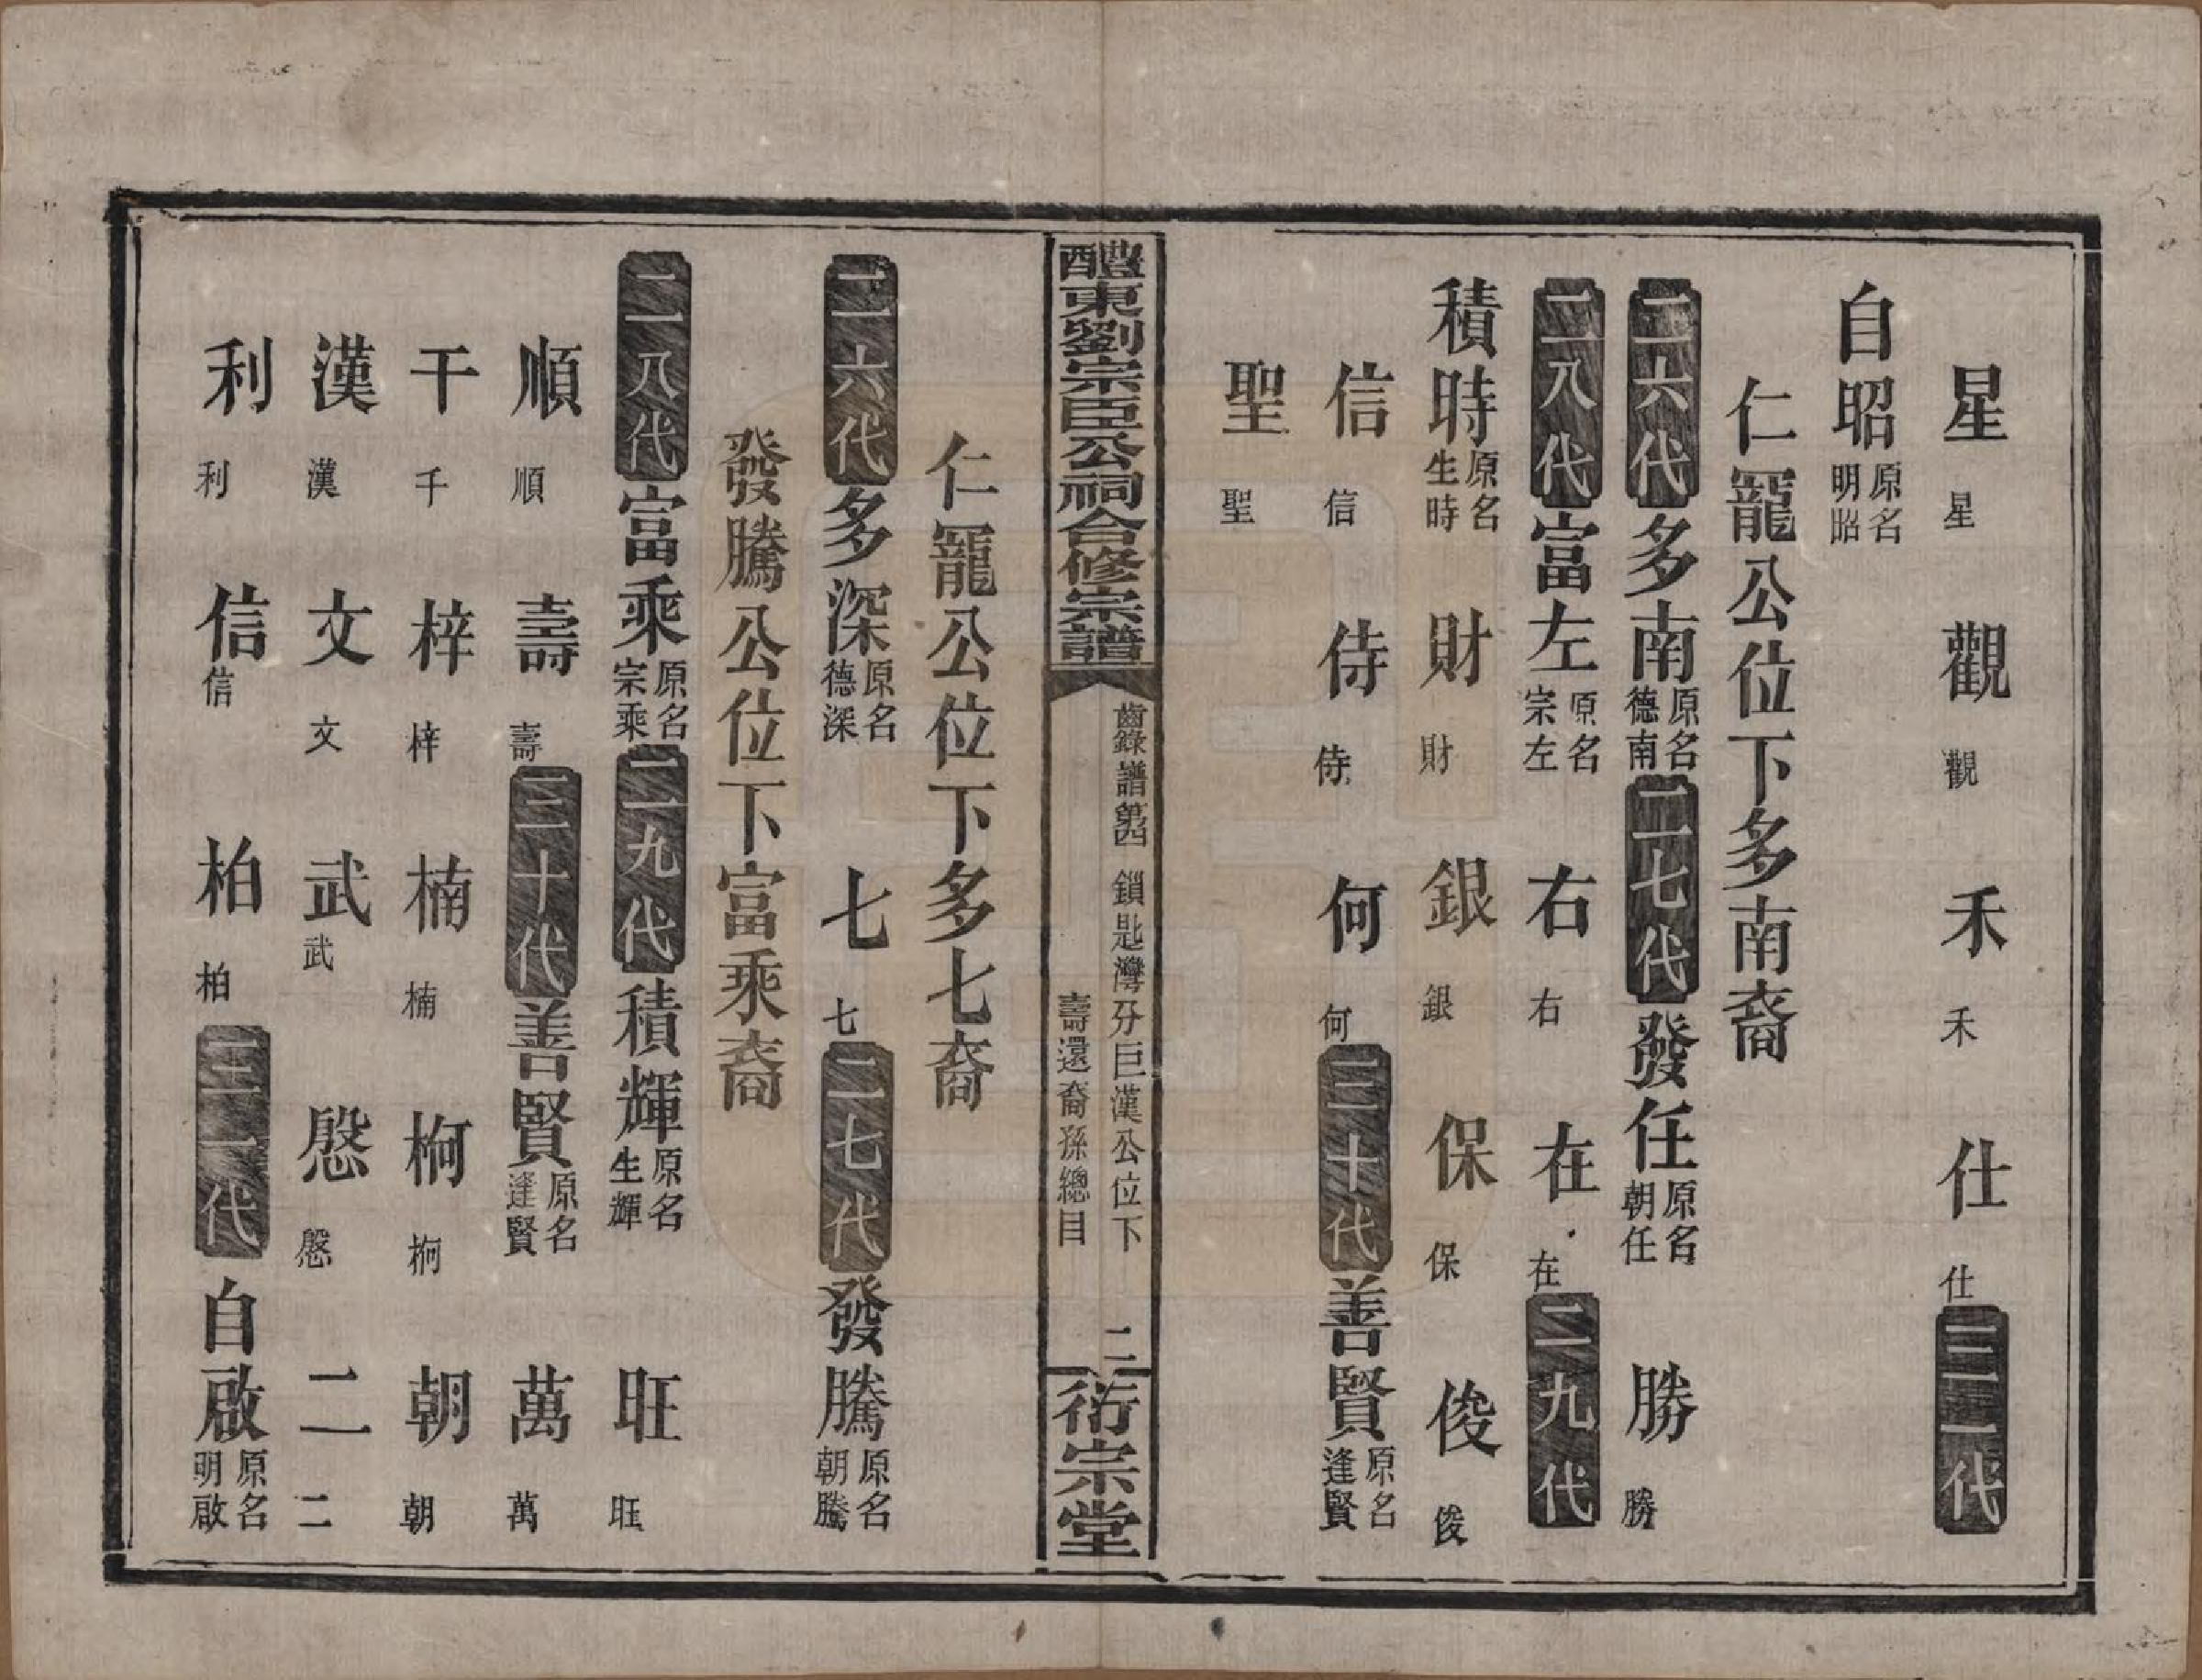 星星　觀觀　禾禾　仕仕　三一代
自昭原名明昭
仁寵公位下多南裔
二六代　多南原名德南　二七代　發任原名朝任　勝勝
二八代　富左原名宗左　右右　在在　二九代
積時原名生時　財財　銀銀　保保　俊俊
信信　侍侍　何何　三十代　善賢原名逢賢
聖聖
醴東劉宗臣公祠合修宗譜
齒錄譜第四　鎖匙灣分巨漢公位下
壽還裔孫總目
二
衍宗堂
仁寵公位下多七裔
二六代　多深原名德深　七七　二七代　發騰原名朝騰
發騰公位下富乘裔
二八代　富乘原名宗乘　二九代　積輝原名生輝　旺旺
順順　壽壽　三十代　善賢原名逢賢　萬萬
干千　梓梓　楠楠　桐桐　朝朝
漢漢　文文　武武　慇慇　二二
利利　信信　柏柏　三一代　自啟原名明啟